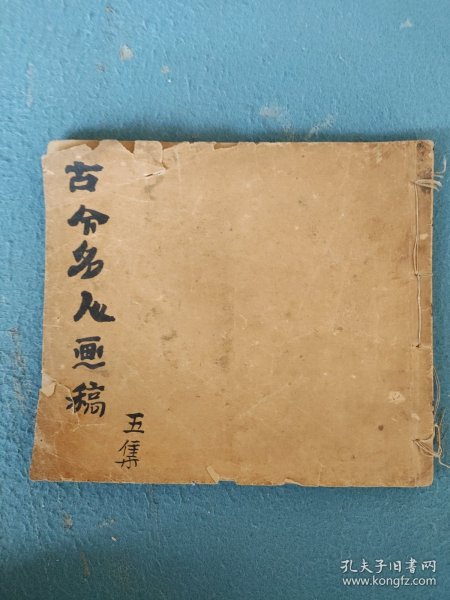 古今名人画稿
五集
孔夫子旧书网
www.kongfz.com